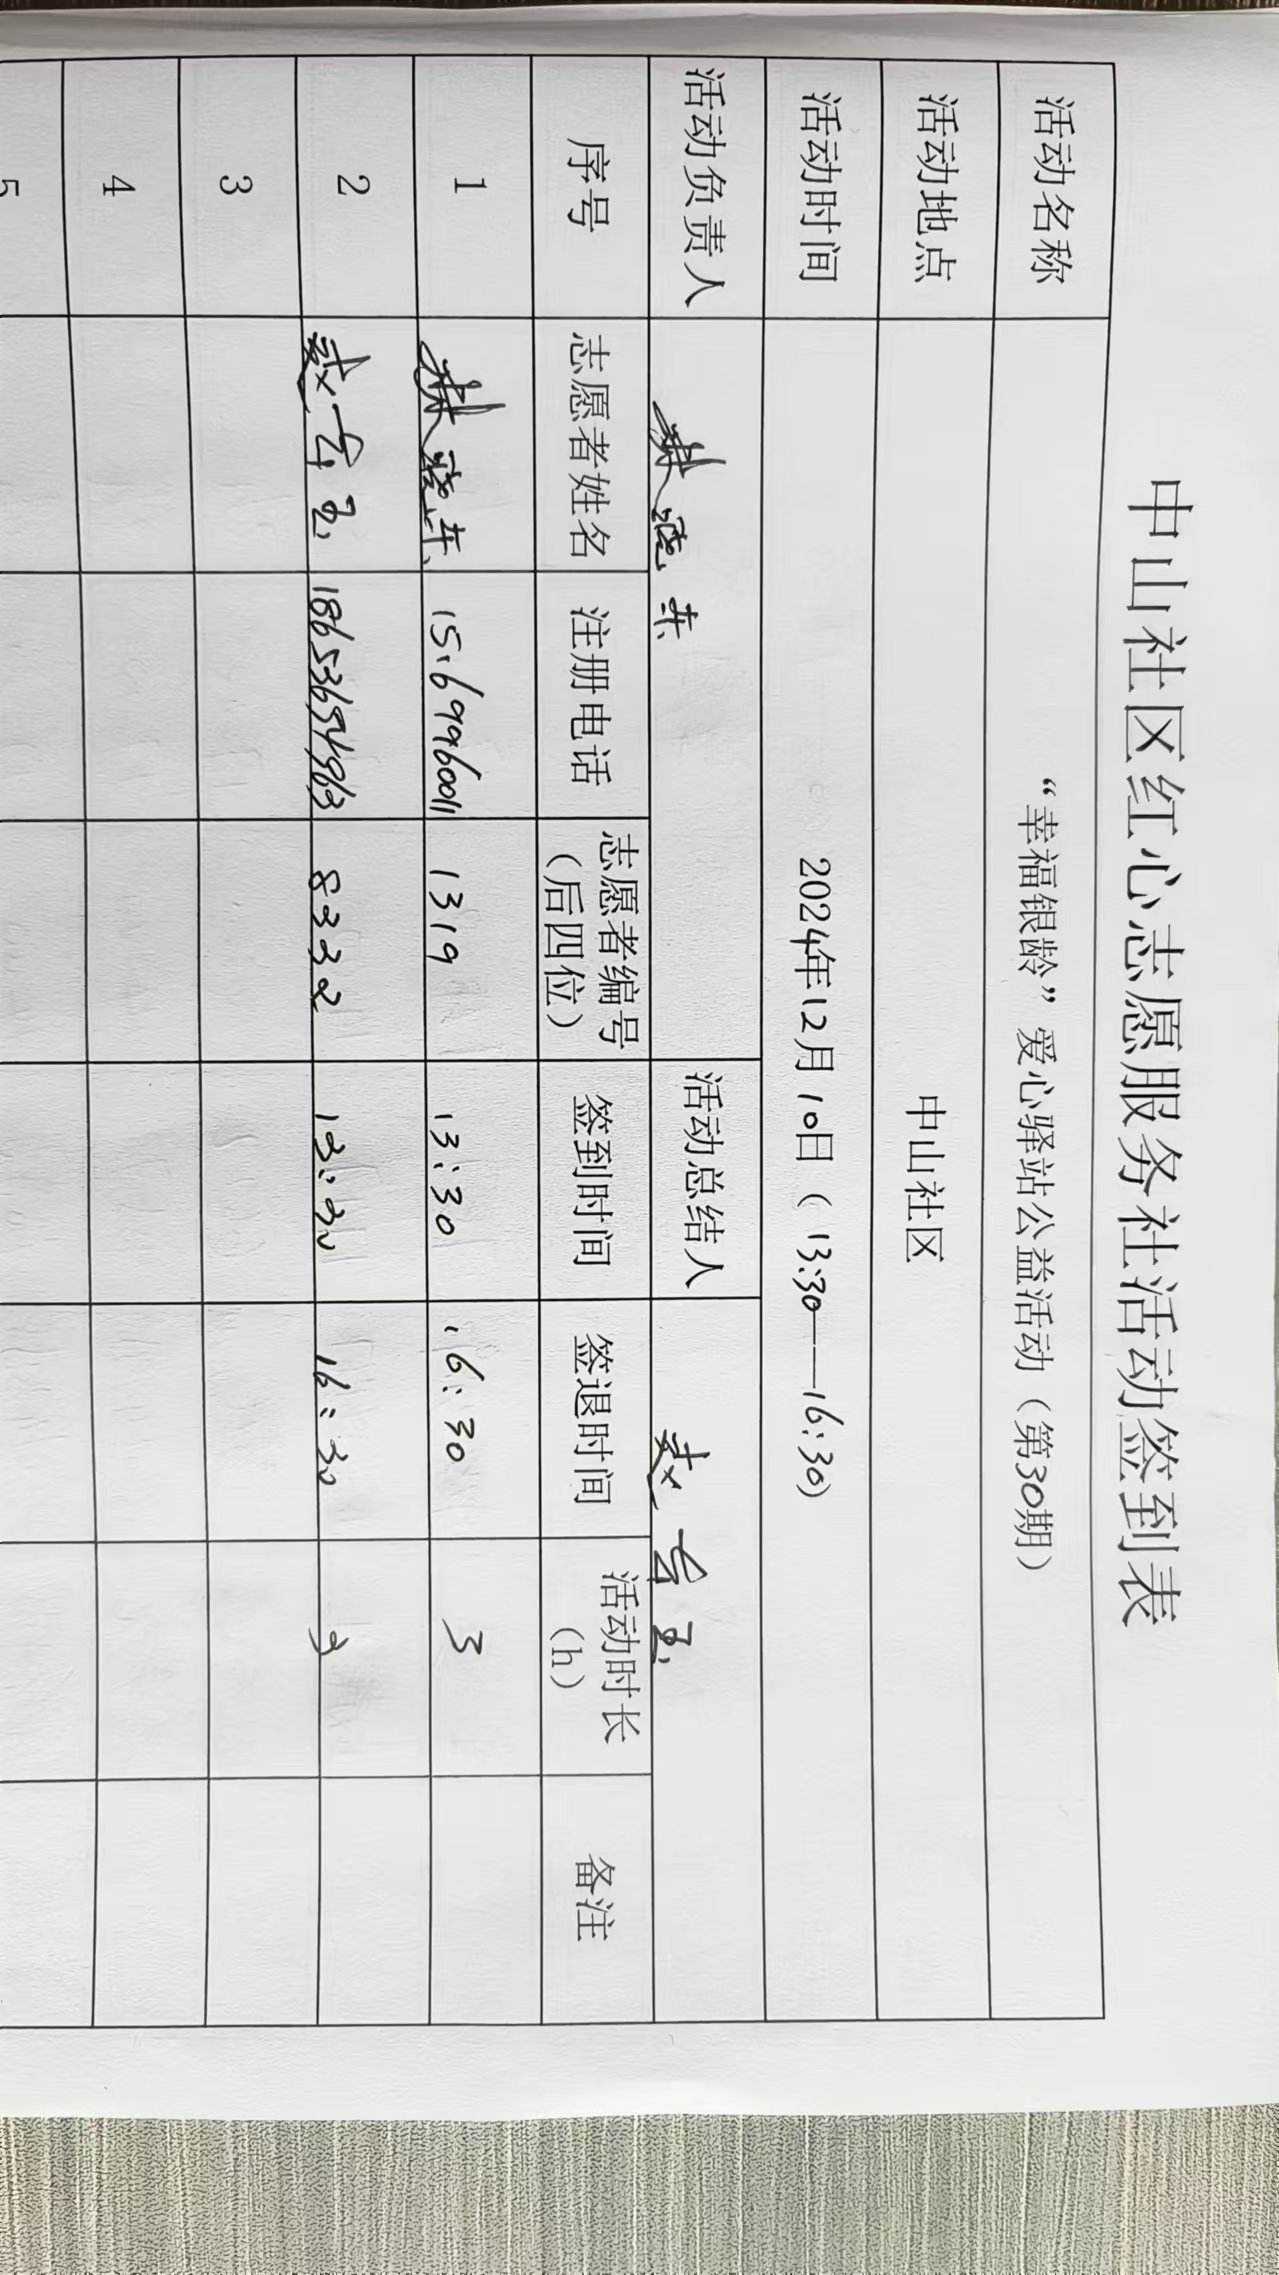 中山社区红心志愿服务社活动签到表
活动名称 “幸福银龄”爱心驿站公益活动（第30期）
活动地点 中山社区
活动时间 2024年12月10日（13:30——16:30）
活动负责人 活动总结人
序号 志愿者姓名 注册电话 志愿者编号（后四位） 签到时间 签退时间 活动时长（h） 备注
1 15169960011 1319 13:30 16:30 3
2 8332 13:30 16:30 3
3
4
5